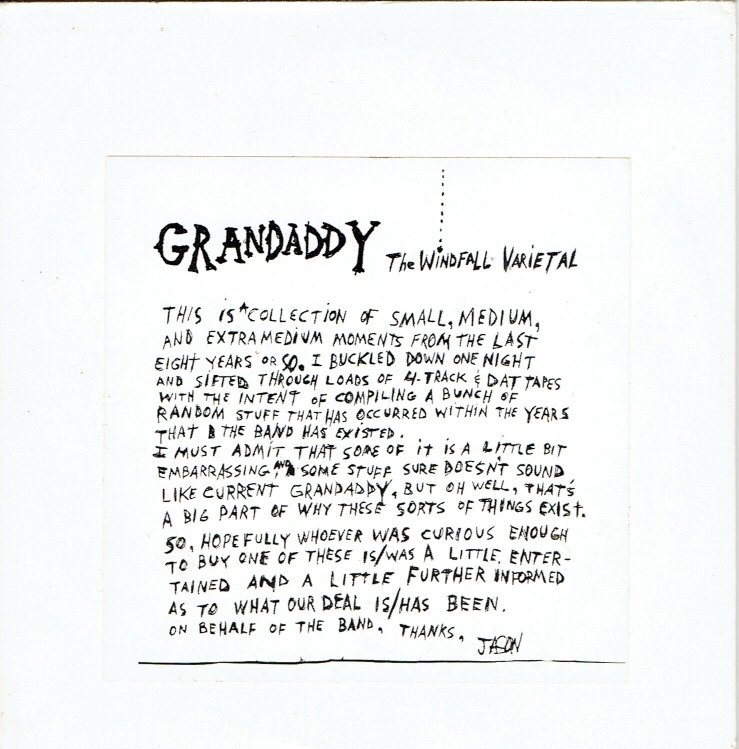 GRANDADDY The WINDFALL VARIETAL
THIS IS A COLLECTION OF SMALL, MEDIUM,
AND EXTRA MEDIUM MOMENTS FROM THE LAST
EIGHT YEARS OR SO. I BUCKLED DOWN ONE NIGHT
AND SIFTED THROUGH LOADS OF 4-TRACK & DAT TAPES
WITH THE INTENT OF COMPILING A BUNCH OF
RANDOM STUFF THAT HAS OCCURRED WITHIN THE YEARS
THAT THE BAND HAS EXISTED.
I MUST ADMIT THAT SOME OF IT IS A LITTLE BIT
EMBARRASSING, AND SOME STUFF SURE DOESN'T SOUND
LIKE CURRENT GRANDADDY, BUT OH WELL, THAT'S
A BIG PART OF WHY THESE SORTS OF THINGS EXIST.
SO, HOPEFULLY WHOEVER WAS CURIOUS ENOUGH
TO BUY ONE OF THESE IS/WAS A LITTLE ENTER-
TAINED AND A LITTLE FURTHER INFORMED
AS TO WHAT OUR DEAL IS/HAS BEEN.
ON BEHALF OF THE BAND, THANKS,
JASON